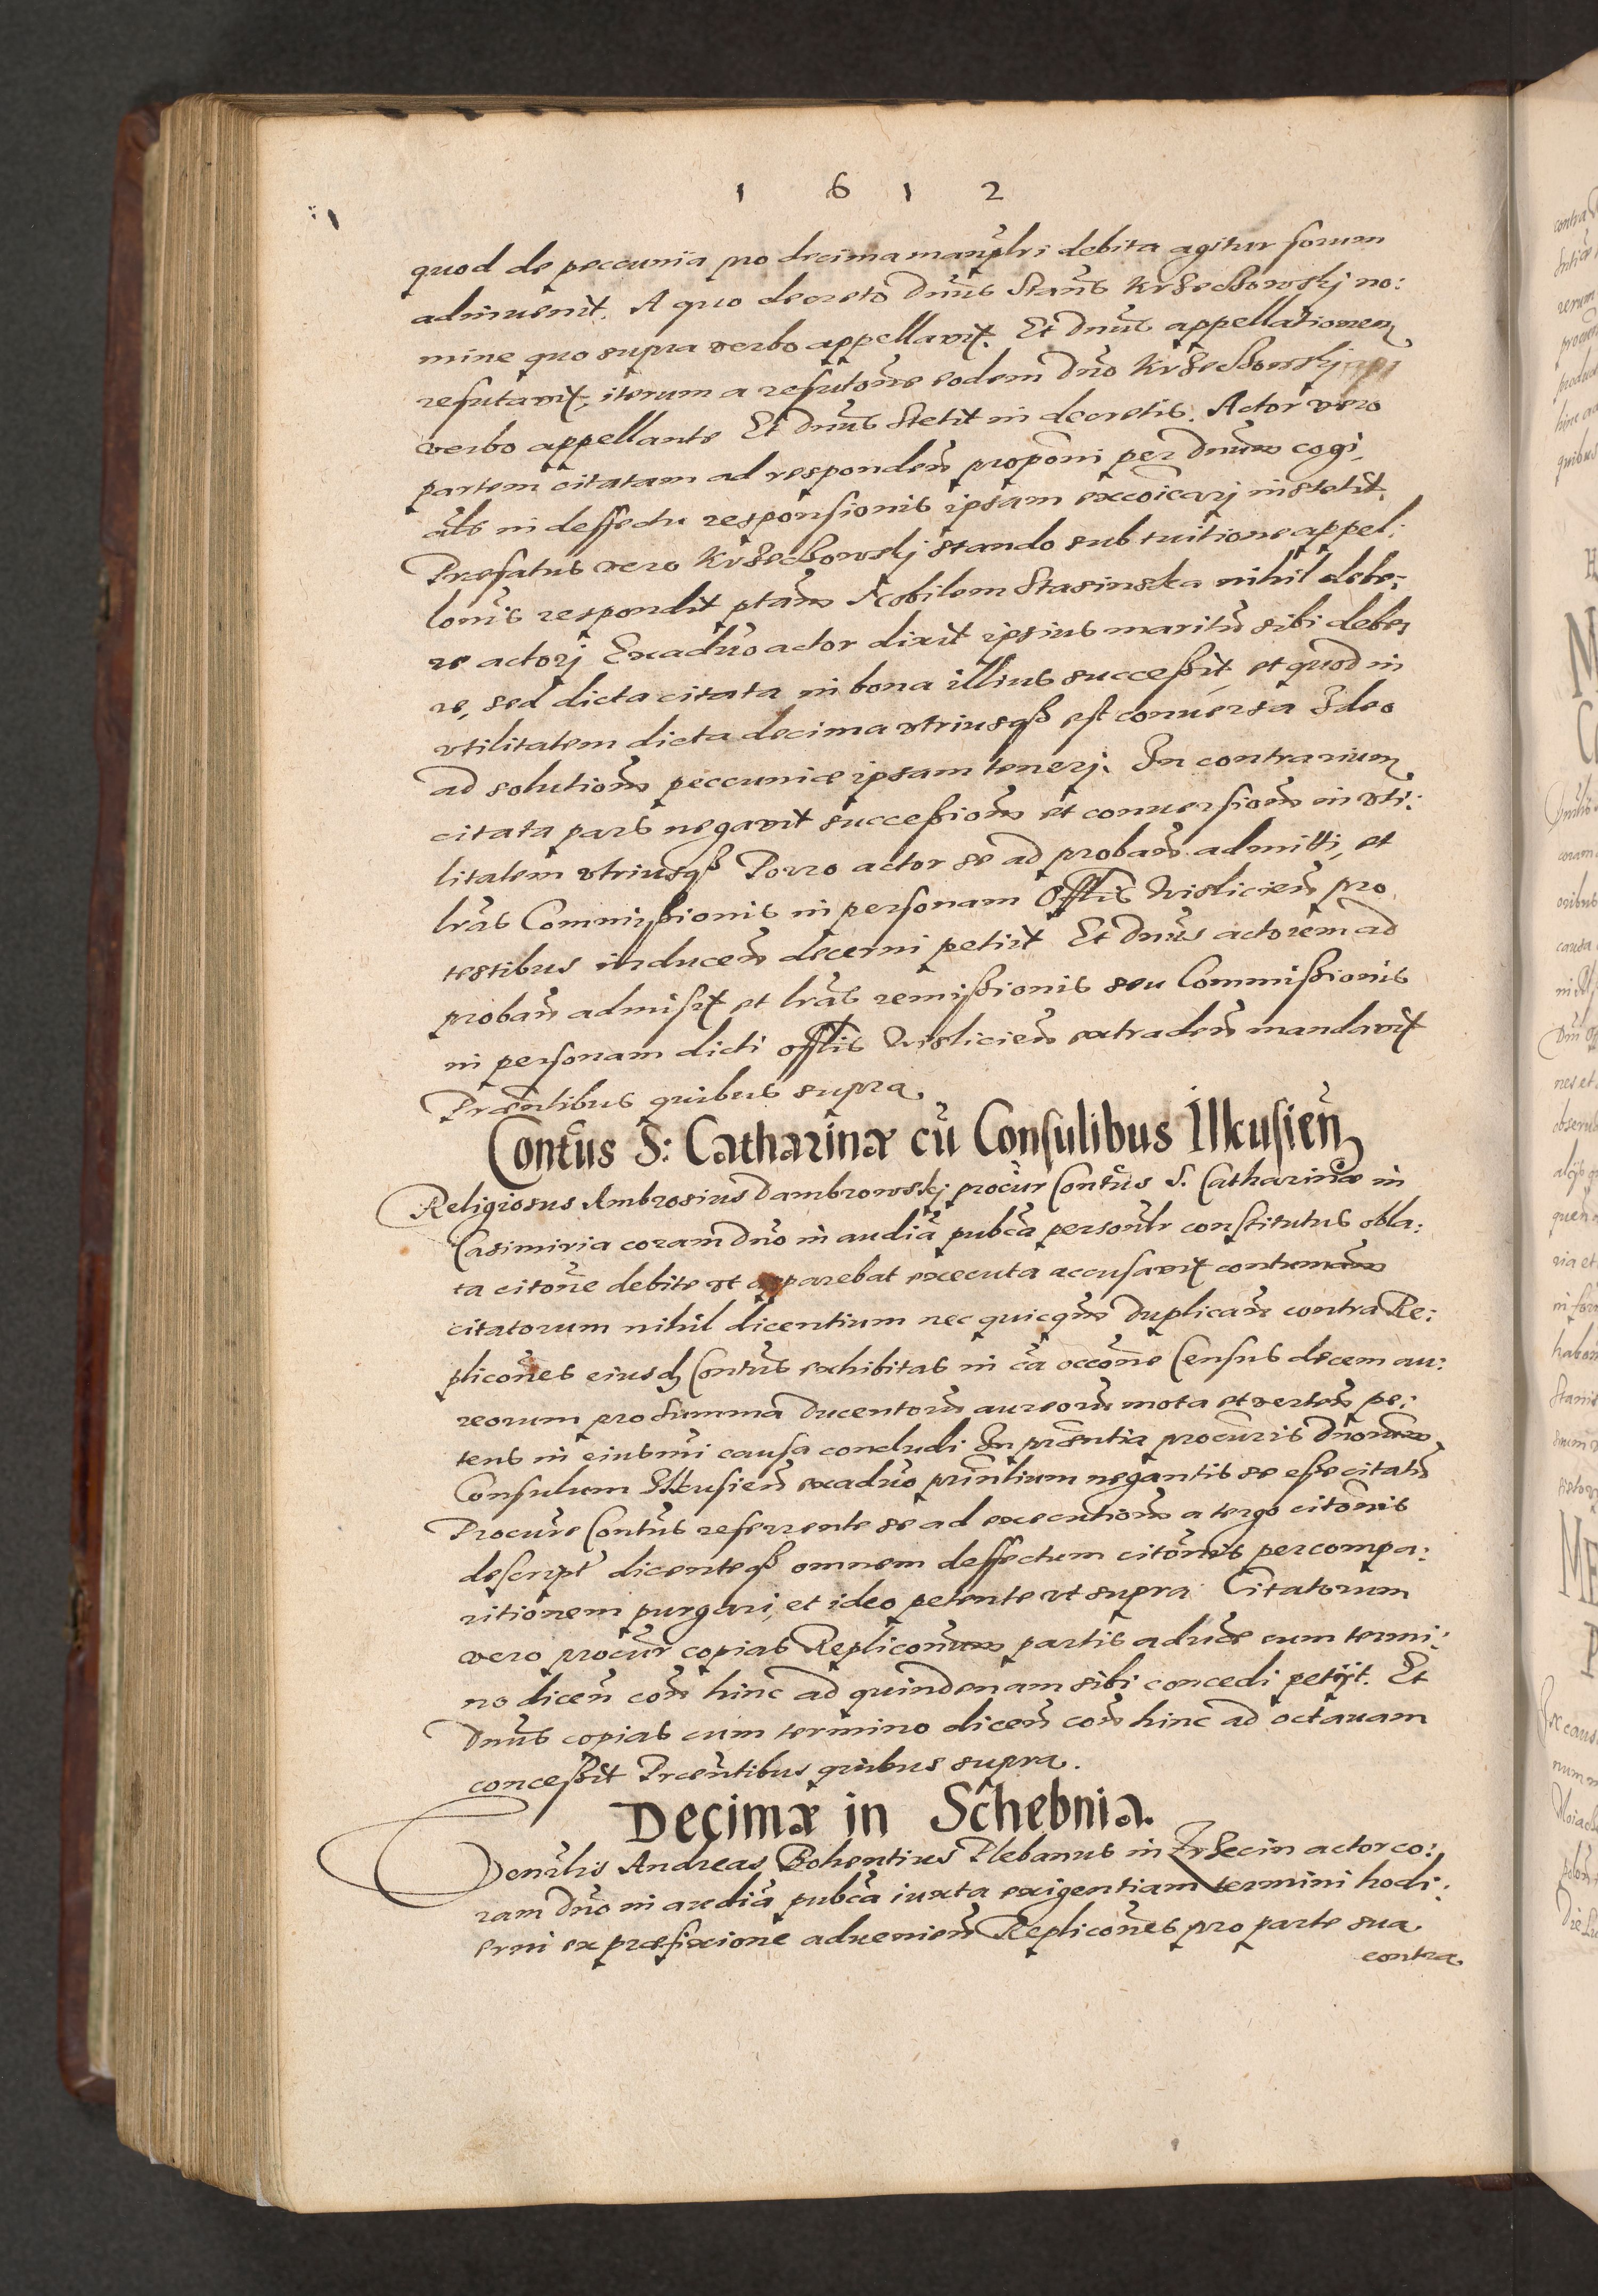 1 6 1 2
quod de peccunia pro decima manuphri debita agitur forum
adinuenit. A quo decreto Dnus Stans Krzeczowskj no:
mine quo supra verbo appellavit. Et Dnus appellationem
refutavit, iterum a refutone eodem Dno Krzeczowskj
verbo appellante Et Dnus stetit in decretis. Actor vero
partem citatam ad responden proponi per Dnum cogi,
als in deffectu responsionis ipsam excoicarj institit.
Præfatus vero Krzeczowskj stando sub tuitione appel:
lonis respondit ptam Nobilem Stasinska nihil debe:
re actorj Exaduo actor dixit ipsius maritu sibi debe:
re, sed dicta citata in bona illius succeßit, et quod in
vtilitatem dicta decima vtriusqß est conuersa Ideo
ad solutiom peccuniæ ipsam tenerj. In contrarium
citata pars negavit succeßiom et conuersiom in vti:
litatem vtriusqß Porro actor se ad proban admitti, et
lras Commißionis in personam Offlis Wislicien pro
testibus inducen decerni petiit Et Dnus actorem ad
proban admisit et lras remißionis seu Commißionis
in personam dicti offlis Wislicien extraden mandavit
Præntibus quibus supra.
Contus S: Catharinæ cu Consulibus Ilkusien
Religiosus Ambrosius Dambrowskj procur Contus S. Catharinæ in
Casimiria coram Dno in audia pubca personlr constitutus obla:
ta citone debite vt apparebat executa accusavit contumam
citatorum nihil dicentium nec quicqm duplican contra Re:
plicones eiusd Contus exhibitas in ca occone Census decem au:
reorum pro summa ducentoru aureoru mota et verten pe:
tens in eiusmi causa concludi In præntia procuris Dnorum
Consulum Ilkusien exaduo printium negantis se esse citatu
Procure Contus referrente se ad executiom a tergo citonis
descript dicenteqß omnem deffectum citonis per compa:
ritionem purgari, et ideo petente vt supra Citatorum
vero procur copias Repliconum partis aduersæ cum termi:
no dicen con hinc ad quindenam sibi concedi petijt. Et
Dnus copias cum termino dicen con hinc ad octauam
conceßit Præntibus quibus supra.
Decimæ in Schebnia.
Venrlis Andreas Bohentius Plebanus in Zrzecin actor co:
ram Dno in audia pubca iuxta exigentiam termini hodi:
erni ex præfixione aduenien Replicones pro parte sua
contra